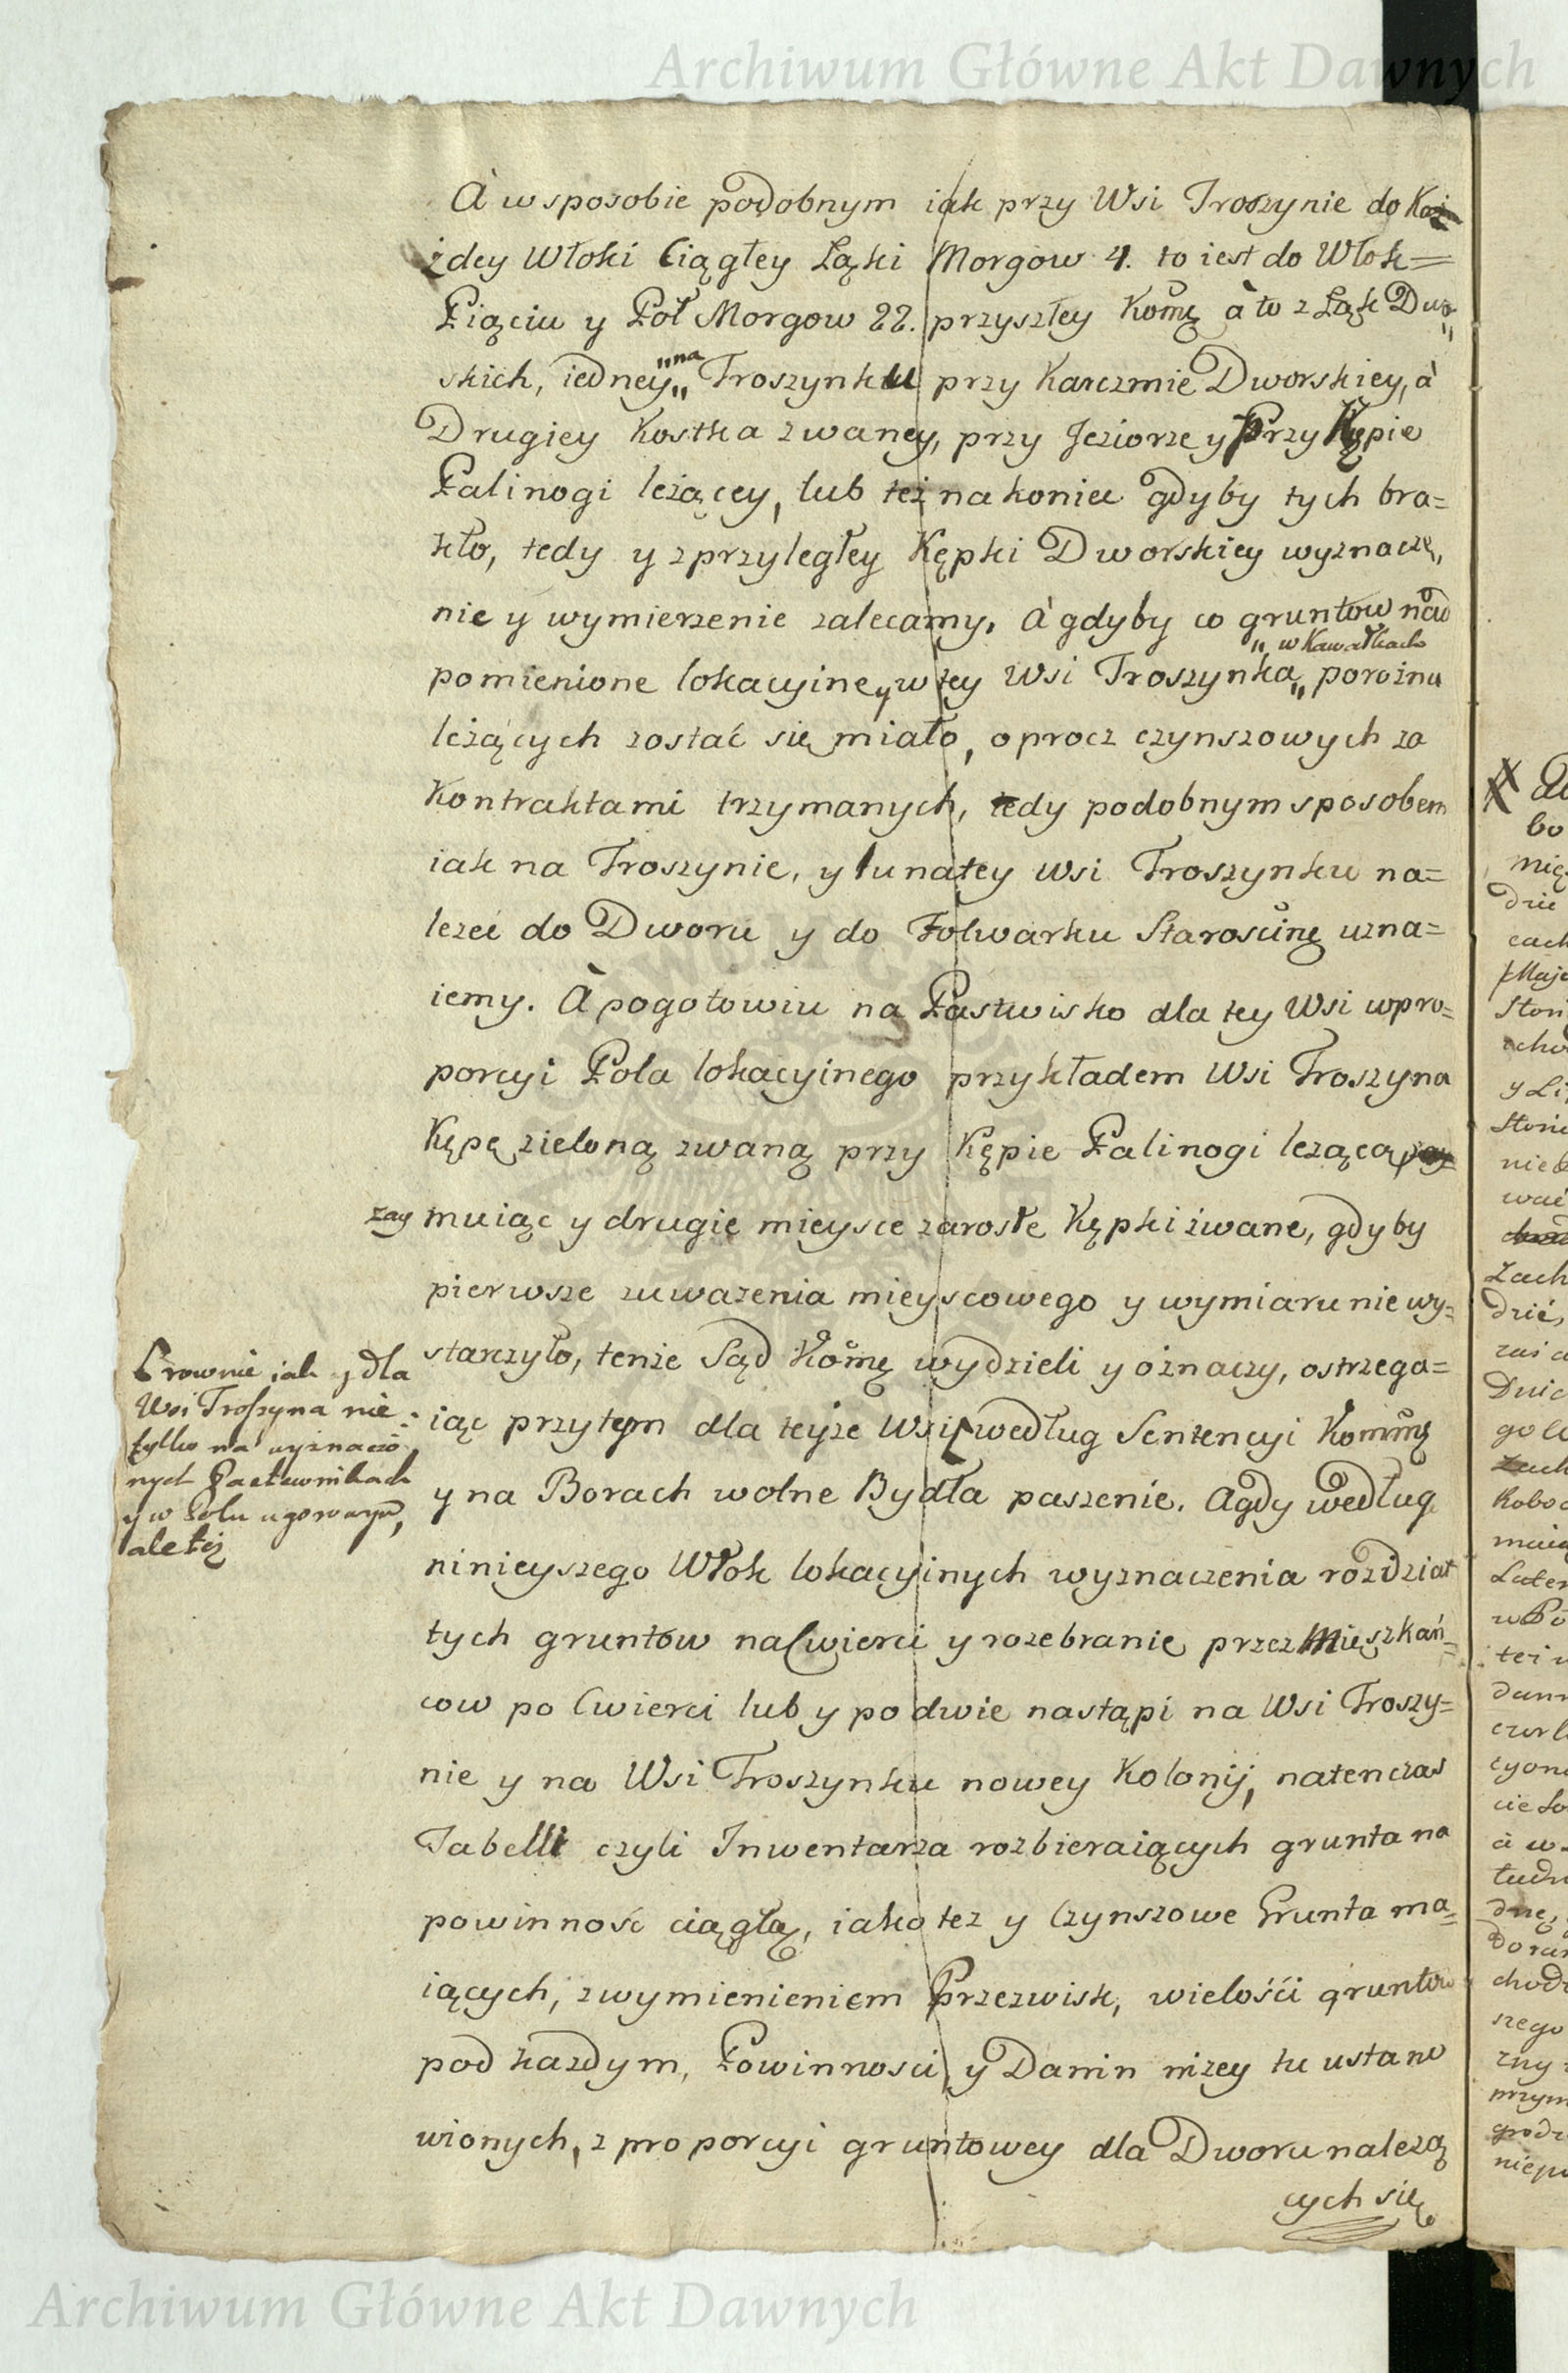 Archiwum Główne Akt Dawnych
À w sposobie podobnym iak przy Wsi Troszynie do Każ
żdey Włoki Ciągłey Łąki Morgow 4. to iest do Włok=
Piąciu y Poł Morgow 22. przyszłey Kom̃ę à to z Łąk Dwor„
skich, iedney „na„ Troszynku przy Karczmie Dworskiey, à
Drugiey Kostka zwaney, przy Jeziorze y Przy Kępie
Palinogi leżącey, lub też na koniec gdyby tych bra=
kło, tedy y z przyległey Kępki Dworskiey wyznacze„
nie y wymierzenie zalecamy. à gdyby co gruntow nad
pomienione lokacyine y w tey Wsi Troszynka „w Kawałkach„ porożnu
leżących zostać się miało, oprocz czynszowych za
Kontraktami trzymanych, tedy podobnym sposobem
iak na Troszynie, y tu na tey Wsi Troszynku na=
lezeć do Dworu y do Folwarku Starościnę uzna=
iemy. À pogotowiu na Pastwisko dla tey Wsi w pro=
porcyi Pola lokacyinego przykładem Wsi Troszyna
Kępę zieloną zwaną przy Kępie Palinogi leżącą,
zay muiąc y drugie mieysce zarosłe Kępki zwane, gdyby
pierwsze z uważenia mieyscowego y wymiaru nie wy=
starczyło, tenże Sąd Kom̃ę wydzieli y oznaczy, ostrzega=
iąc przytym dla teyże Wsi według Sentencyi Kommę
y na Borach wolne Bydła paszenie. A gdy według
ninieyszego Włok lokacyinych wyznaczenia rozdział
tych gruntow na Cwierci y rozebranie przez Mieszkań=
cow po Cwierci lub y po dwie nastąpi na Wsi Troszy=
nie y na Wsi Troszynku nowey Kolonij, natenczas
Tabelli czyli Inwentarza rozbieraiących grunta na
powinność ciągłą, iako tez y Czynszowe Grunta ma=
iących, z wymienieniem Przezwisk, wielości gruntow
pod każdym, Powinności y Danin niżey tu ustano
wionych, z proporcyi gruntowey dla Dworu należą
cych się
rownie iak y dla
Wsi Troszyna nie
tylko na wyznaczo
nych Pastewnikach
y w Polu ugorowym,
ale też
bo
Archiwum Główne Akt Dawnych